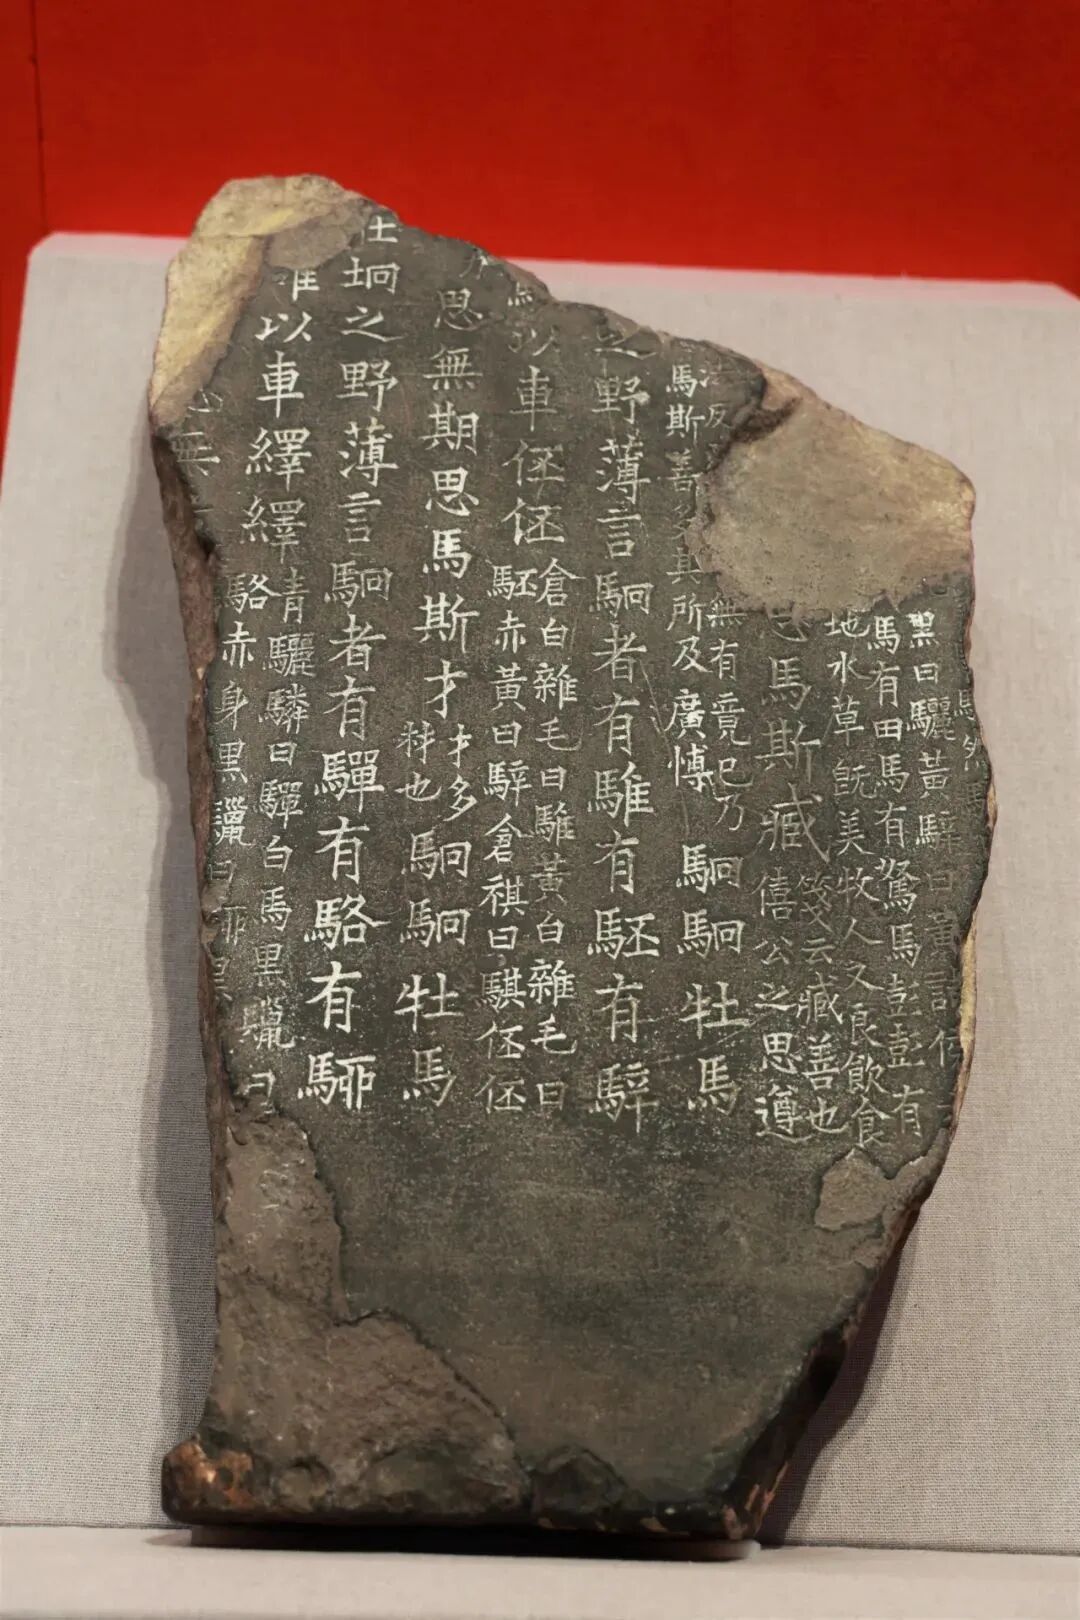 黑曰驪黃騂曰黃諸侯
馬有田馬有駑馬彭彭有
地水草既美牧人又良飲食
思馬斯臧箋云臧善也
僖公之思遵
無有竟已乃
馬斯善多其所及廣博駉駉牡馬
之野薄言駉者有騅有駓有騂
以車伾伾倉白雜毛曰騅黃白雜毛曰
駓赤黃曰騂倉祺曰騏伾伾
思無期思馬斯才才多
材也駉駉牡馬
在坰之野薄言駉者有驒有駱有駵
以車繹繹青驪驎曰驒白馬黑鬣曰
駱赤身黑鬣曰駵黑
無